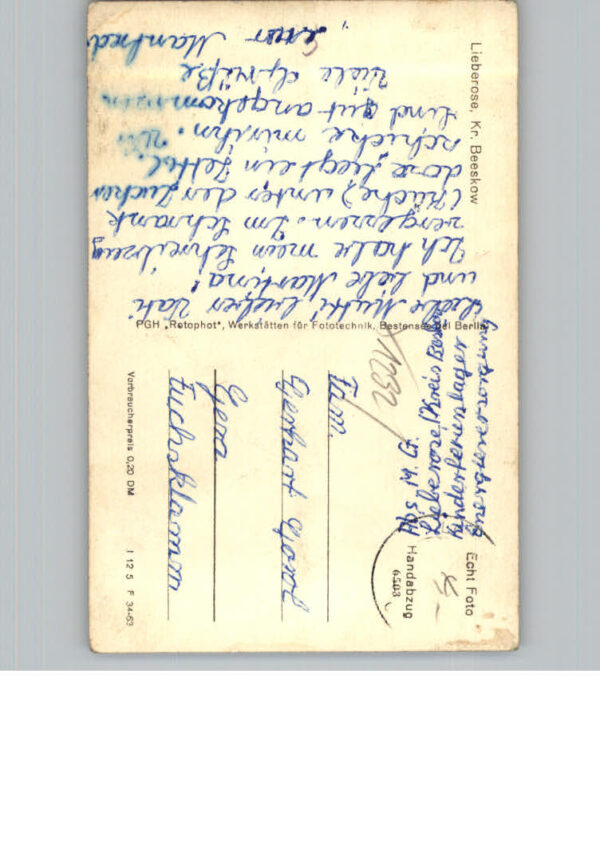 Lieberose, Kr. Beeskow
Liebe Mutti lieber Vati
und liebe Martina!
Ich habe mein Schreibzeug
vergessen. Im Schrank
(Küche) unter der
dore liegt ein Zettel.
schicke mir ihn. Wir
sind gut angekommen
Viele Grüße
euer Manfred
PGH „Rotophot", Werkstätten für Fototechnik, Bestensee bei Berlin
1232
Abs M. G.
Lieberose/Kreis Beeskow
Kinderferienlager
Fam.
Gerhart
Gera
Fuchsklamm
Echt Foto
Handabzug
6503
Verbraucherpreis 0,20 DM
I 12 5 F 34-63